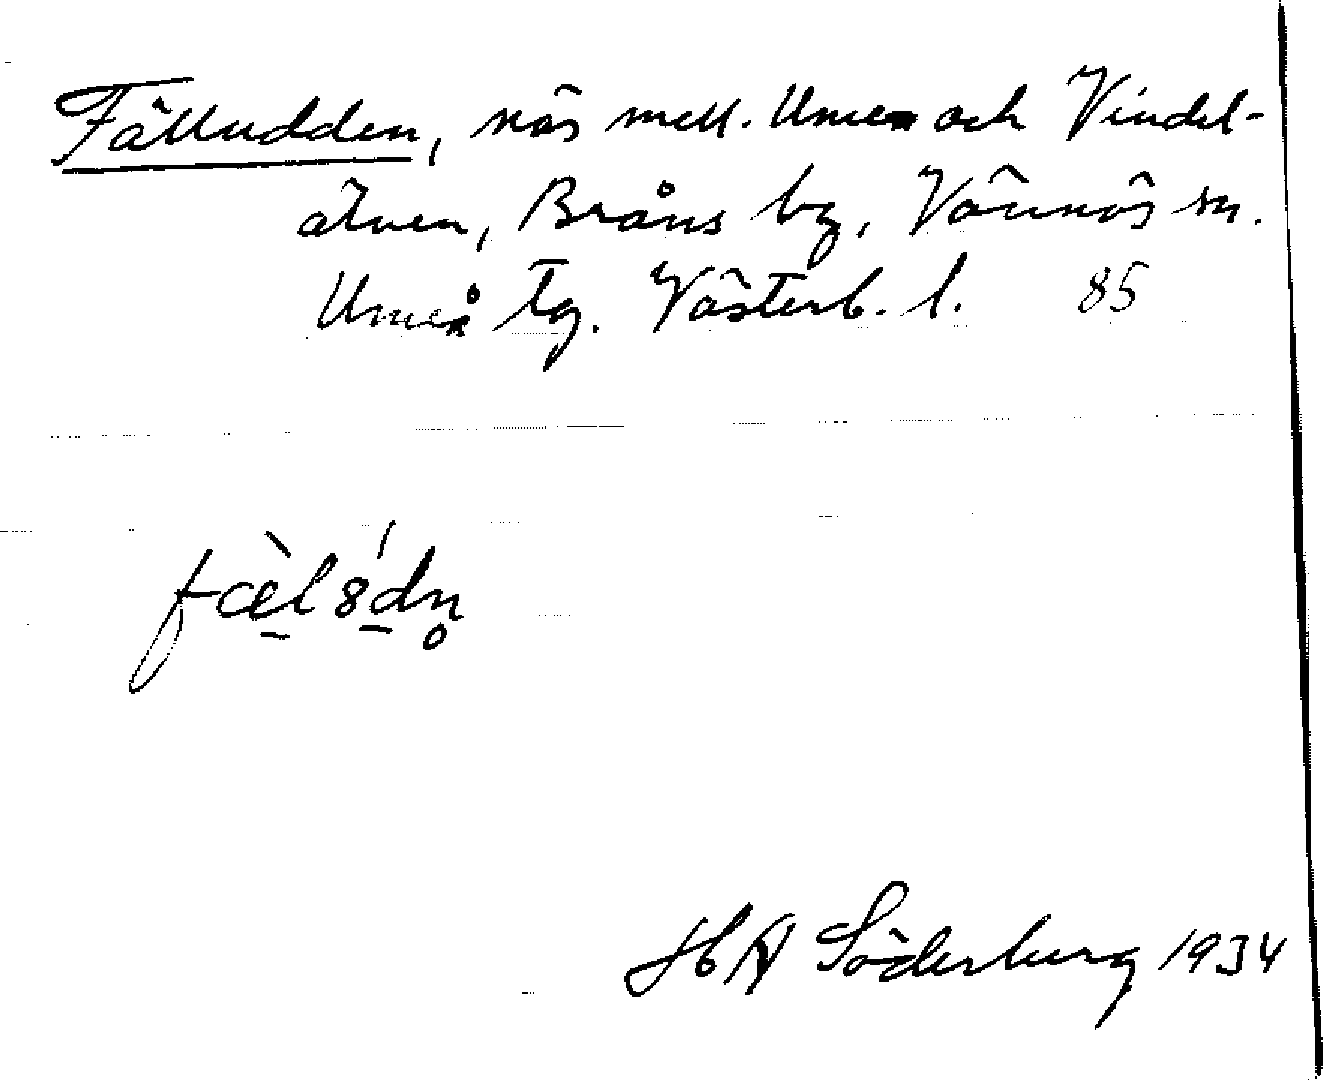 Fälludden, näs mell. Ume och Vindel-
älven, Bråns by, Vännäs sn.
Umeå tg. Västerb. l. 85
fæ̀l8́dn̥
H A Söderberg 1934